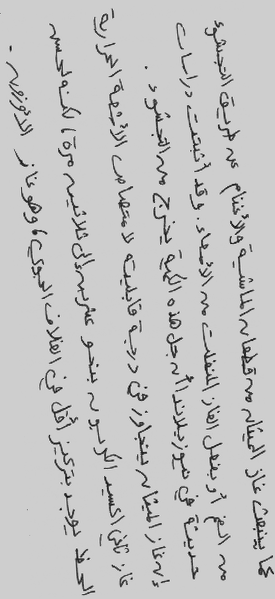 كما ينبعث غاز الميثان من قطعان الماشية والأغنام عن طريق التجشوء
من الفم أو بفعل الغاز المنفلت من الأمعاء. وقد أثبتت دراسات
حديثة في نيوزيلاندا أن جل هذه الكمية يخرج من التجشوء.
إن غاز الميثان يتجاوز في درجة قابليته لامتصاص الأشعة الحرارية
غاز ثاني اكسيد الكربون بنحو عشرين إلى ثلاثين مرة، لكنه لحسن
الحظ يوجد بتركيز أقل في الغلاف الجوي، وهو غاز الأوزون.